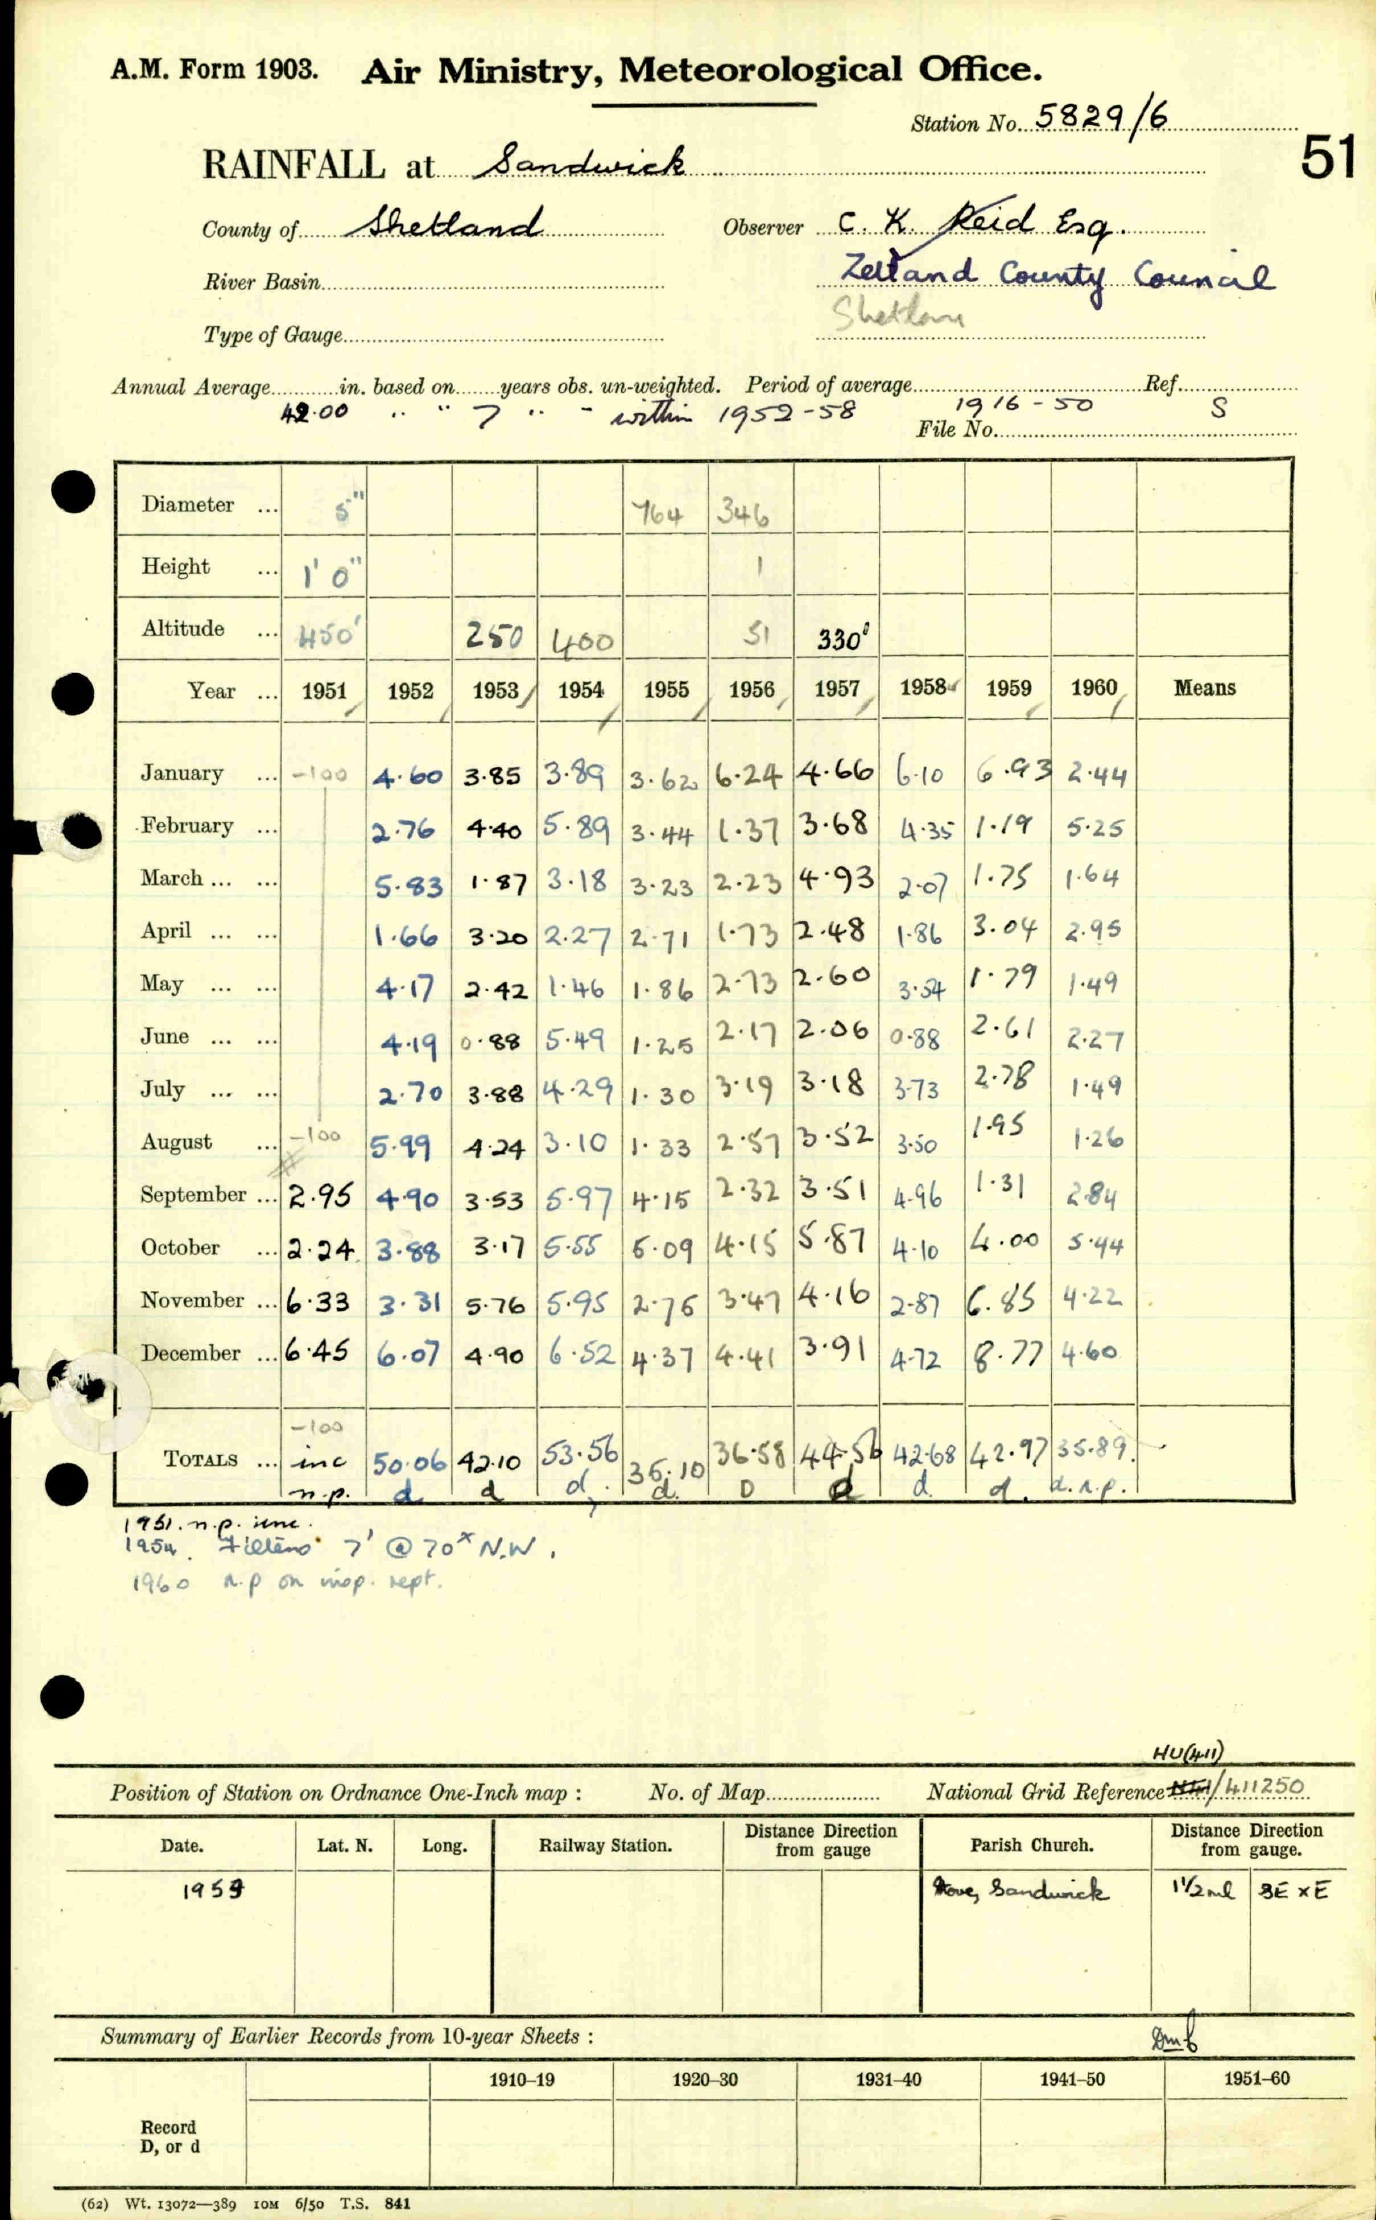 A.M. Form 1903. Air Ministry, Meteorological Office.
Station No. 5829/6
51
RAINFALL at Sandwick
County of Shetland Observer C. K. Reid Esq.
Zetland County Council
River Basin
Shetland
Type of Gauge
Annual Average in. based on years obs. un-weighted. Period of average Ref.
42.00 " " 7 " - within 1952-58 1916-50 S
File No.
Diameter ... 5" 764 346
Height ... 1' 0" 1
Altitude ... 450' 250 400 51 330'
Year ... 1951 1952 1953 1954 1955 1956 1957 1958 1959 1960 Means
January ... -100 4.60 3.85 3.89 3.62 6.24 4.66 6.10 6.93 2.44
February ... 2.76 4.40 5.89 3.44 1.37 3.68 4.35 1.19 5.25
March ... ... 5.83 1.87 3.18 3.23 2.23 4.93 2.07 1.75 1.64
April ... ... 1.66 3.20 2.27 2.71 1.73 2.48 1.86 3.04 2.95
May ... ... 4.17 2.42 1.46 1.86 2.73 2.60 3.54 1.79 1.49
June ... ... 4.19 0.88 5.49 1.25 2.17 2.06 0.88 2.61 2.27
July ... ... 2.70 3.88 4.29 1.30 3.19 3.18 3.73 2.78 1.49
August ... -100 5.99 4.24 3.10 1.33 2.57 3.52 3.50 1.95 1.26
September ... 2.95 4.90 3.53 5.97 4.15 2.32 3.51 4.96 1.31 2.84
October ... 2.24 3.88 3.17 5.55 6.09 4.15 5.87 4.10 4.00 5.44
November ... 6.33 3.31 5.76 5.95 2.76 3.47 4.16 2.87 6.85 4.22
December ... 6.45 6.07 4.90 6.52 4.37 4.41 3.91 4.72 8.77 4.60
-100
TOTALS ... inc 50.06 42.10 53.56 36.10 36.58 44.56 42.68 42.97 35.89
n.p. d d d. d. D d d. d. d.n.p.
1951. n.p. inc.
1954. 7' @ 70x N.W.
1960 n.p on insp. rept.
HU(411)
Position of Station on Ordnance One-Inch map : No. of Map National Grid Reference /411250
Date. Lat. N. Long. Railway Station. Distance from Direction gauge Parish Church. Distance from Direction gauge.
1953 Sandwick 1½ ml SE x E
Summary of Earlier Records from 10-year Sheets :
1910–19 1920–30 1931–40 1941–50 1951–60
Record
D, or d
(62) Wt. 13072—389 10M 6/50 T.S. 841